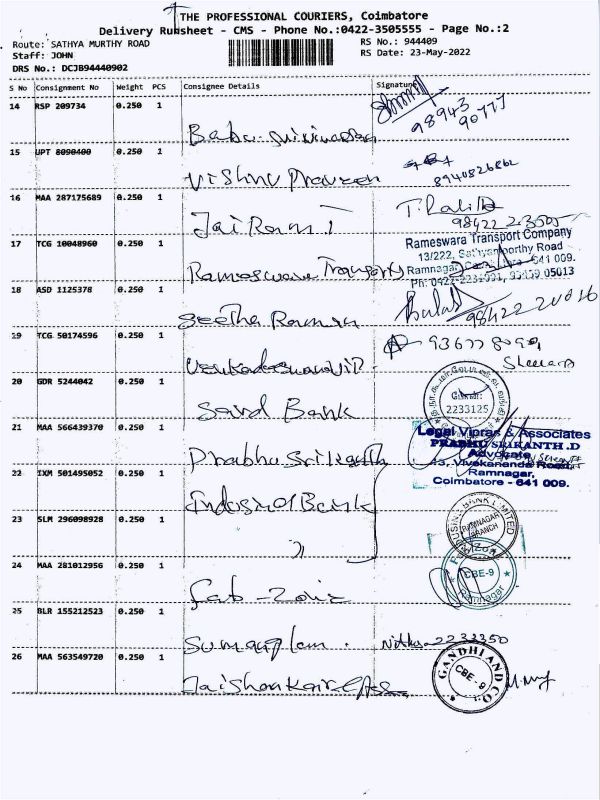 THE PROFESSIONAL COURIERS, Coimbatore
Delivery Runsheet - CMS - Phone No.:0422-3505555 - Page No.:2
Route: SATHYA MURTHY ROAD
RS No.: 944409
Staff: JOHN
RS Date: 23-May-2022
DRS No.: DCJB94440902
S No Consignment No Weight PCS Consignee Details Signature
14 RSP 209734 0.250 1
98943
90777
15 UPT 8090400 0.250 1
Vishnu Praveen
8940826862
16 MAA 287175689 0.250 1
Jai Ram T
T. Lalith
98422 23505
17 TCG 10048960 0.250 1
Rameswara Transports
Rameswara Transport Company
13/222, Sathyamoorthy Road
Ramnagar, 641 009.
Ph: 0422-2231991, 05013
18 ASD 1125378 0.250 1
Seetha Raman
98422 20016
19 TCG 50174596 0.250 1
20 GDR 5244042 0.250 1
Bank
2233125
21 MAA 566439370 0.250 1
Prabhu
Legal Vipras & Associates
PRABHU SRIKANTH .D
Advocate
43, Vivekananda Road,
Ramnagar,
Coimbatore - 641 009.
22 IXM 501495052 0.250 1
Indusind Bank
23 SLM 296098928 0.250 1
"
INDUSIND BANK LIMITED
RAMNAGAR
BRANCH
24 MAA 281012956 0.250 1
Fab - Zone
CBE-9
Ramnagar
25 BLR 155212523 0.250 1
2233350
26 MAA 563549720 0.250 1
Jaishankar
GANDHI AND CO.
CBE - 9